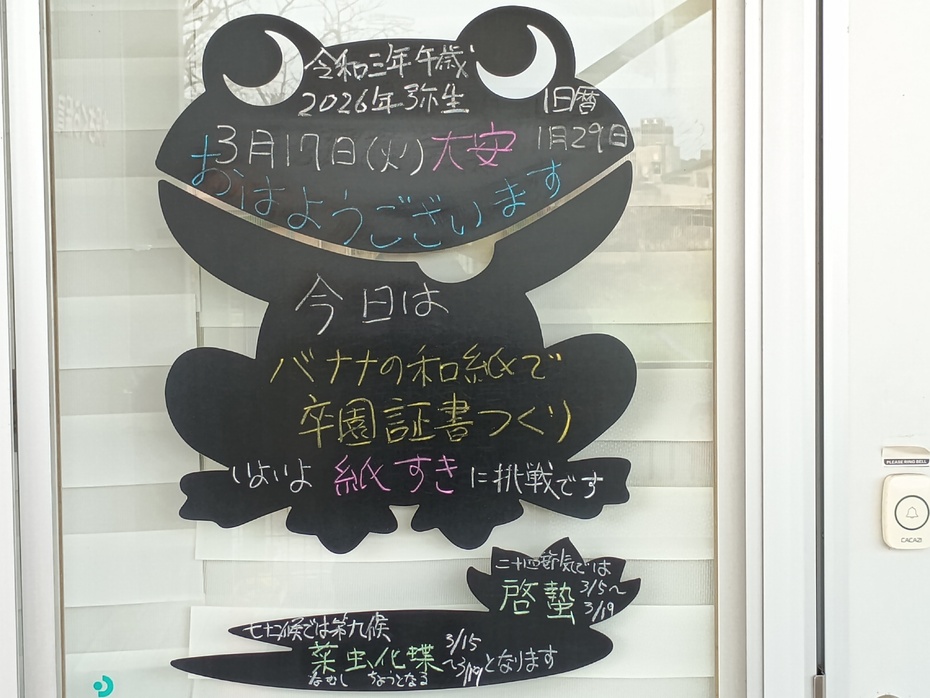 令和三年午歳
2026年弥生
旧暦
1月29日
3月17日(火)大安
おはようございます
今日は
バナナの和紙で
卒園証書つくり
いよいよ 紙すきに挑戦です
二十四節気では
啓蟄 3/5〜3/19
七十二候では第九候
菜虫化蝶 3/15〜3/19となります
なむし ちょうとなる
PLEASE RING BELL
CACAZI